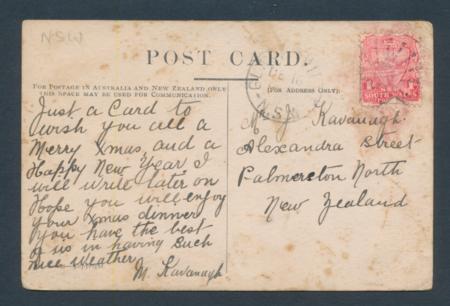 NSW
POST CARD.
FOR POSTAGE IN AUSTRALIA AND NEW ZEALAND ONLY
THIS SPACE MAY BE USED FOR COMMUNICATION.
(FOR ADDRESS ONLY.)
Just a Card to
wish you all a
Merry Xmas, and a
Happy New Year, I
will write later on
Hope you will enjoy
your Xmas dinner
you have the best
of us in having such
nice weather
M. Kavanagh
M J. Kavanagh
Alexandra Street
Palmerston North
New Zealand
N.S.W
SOUTH WALES